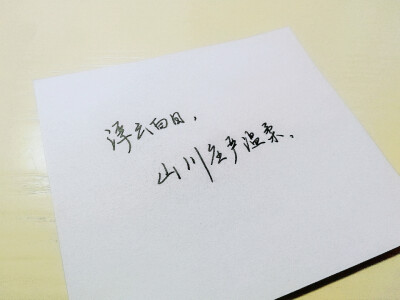 浮云白日,
山川庄严温柔.